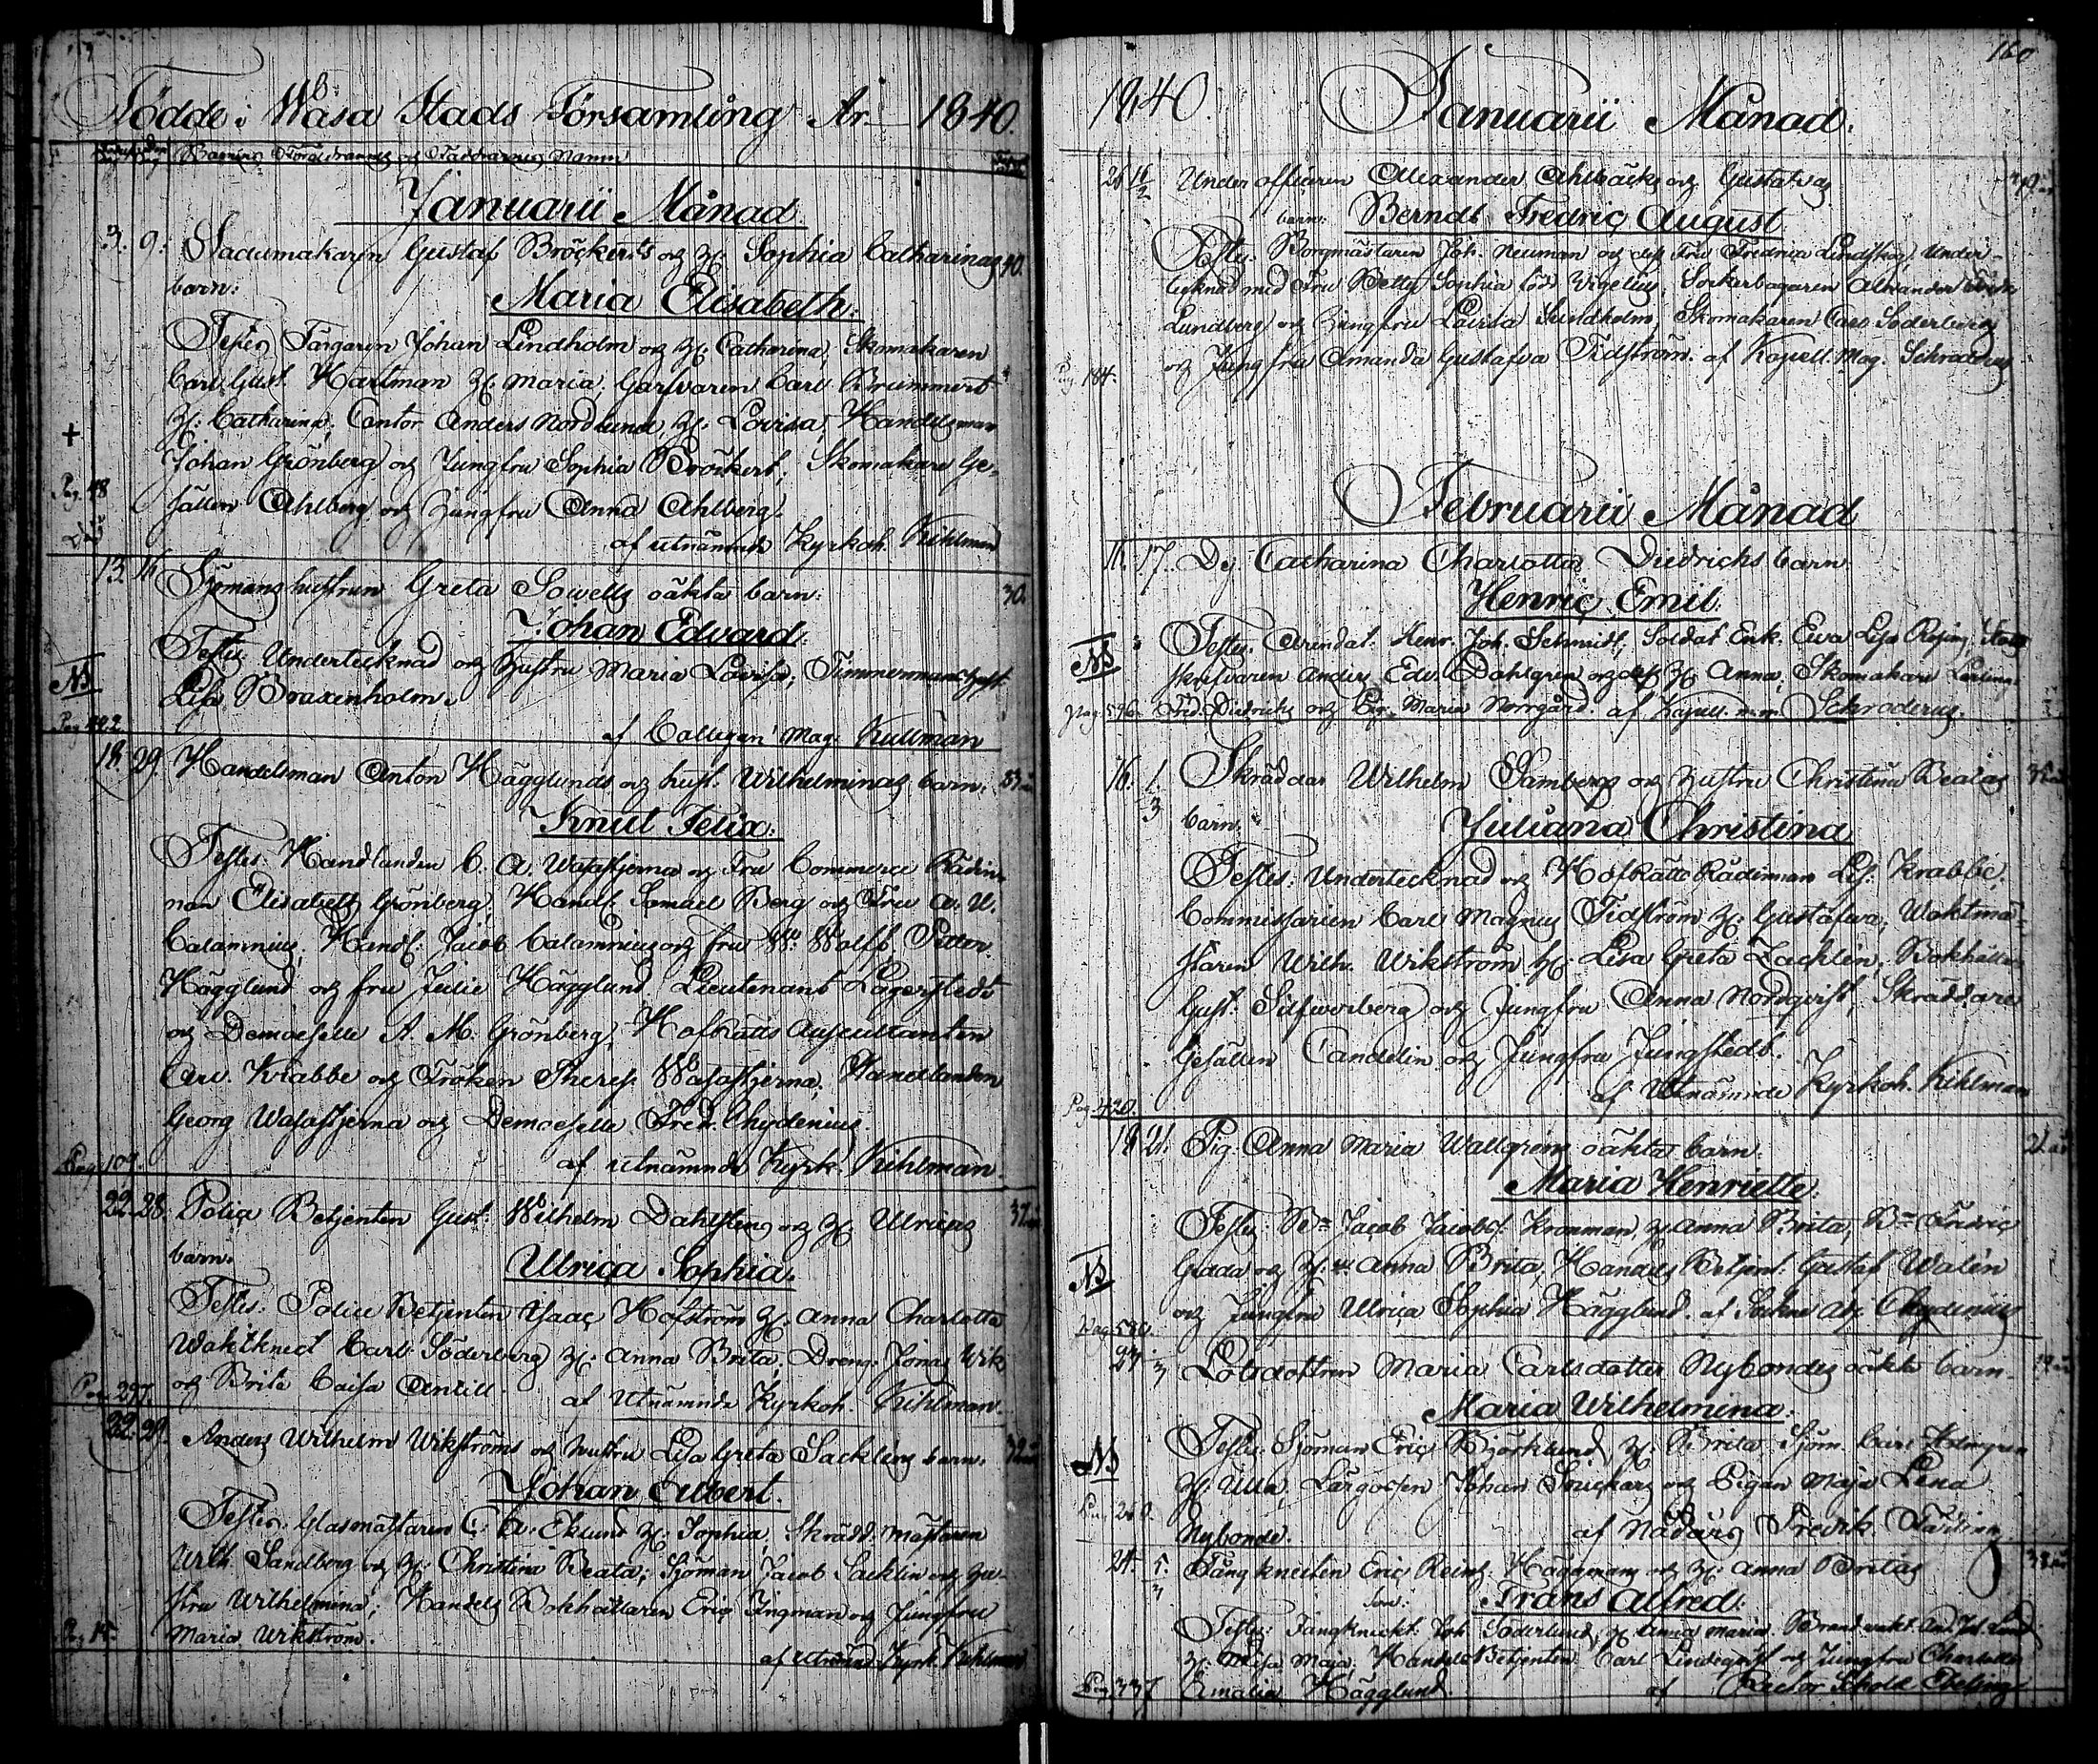 Födde i Wasa Stads Församling År 1840.
Barnens, Föräldrarnes og Faddrarnes Namn
Januarii Månad
3. 9. Gustaf Bröckerts og H. Sophia Catharinas 40.
barn:
Maria Elisabeth:
Testes Färgaren Johan Lindholm og H: Catharina, Skomakaren
Carl Gust. Hartman H: Maria, Garfvaren Carl Brummert
H: Catharina, Cantor Anders Nordlund, H: Lovisa, Handelsman
Johan Grönberg og Jungfru Sophia Bröckert, Skomakare Ge-
Pag. 48
sällen Ahlberg og Jungfru Anna Ahlberg.
Död
af utnämnde Kyrkoh. Kihlman
13. 16 Sjömans hustrun Greta Sowells oäkta barn: 30.
Johan Edvard.
Testes Undertecknad og Hustru Maria Lovisa; Timmermans hust.
NB
Lisa Braxenholm.
af Mag. Kullman
18. 29. Handelsman Anton Hägglunds og hust. Wilhelminas barn: 33 år
Knut Felix:
Testes: Handlanden C. A. Wasastjerna og Fru Commerce Rådin-
nan Elisabeth Grönberg, Handl. Samuel Berg og Fru A. U.
Calamnius, Handl: Jacob Calamnius og fru W: Wolff, Petter
Hägglund og fru Julie Hägglund, Lieutenant Lagerstedt
og Demoiselle A. M. Grönberg, Hofrätts Auscultanten
Carl Krabbe og Fröken Theres Wasastjerna, Handlanden
Georg Wasastjerna og Demoiselle Fred. Chydenius.
Pag 107.
af utnämnde Kyrk. Kihlman.
22. 28. Police Betjenten Gust. Wilhelm Dahlsten og H: Ulricas 37 år
barn.
Ulrica Sophia.
Testes: Police Betjenten Isaac Hofström H: Anna Charlotta
Waktknect Carl Söderberg H: Anna Brita, Dreng: Jonas Wik
og Brita Caisa Antill.
Pag 297.
af Utnämnde Kyrkoh. Kihlman.
22. 29. Anders Wilhelm Wikströms og hustru Lisa Greta Sacklins barn.
Johan Albert.
Testes: Glasmästaren C: A: Eklund H: Sophia, Skrädd: mästaren
Wilh Sandberg og H: Christina Beata; Sjöman Jacob Sacklin og Hu-
stru Wilhelmina; Handels Bokhållaren Eric Ingman og Jungfru
Maria Wikström.
af utnämnd Kyrk. Kihlman
160
1840. Januarii Månad.
26 16/2 Under officeren Alexander Ahlbäcks og Gustafvas
barn: Berndt Fredric August
Testes: Borgmästaren Joh. Neuman og dess Fru Fredrica Lindskog, Under-
tecknad med Fru Betty Sophia född Wigelius, Sockerbagaren Alexander
Lundberg og Jungfru Lovisa Sundholm, Skomakaren Carl Söderberg
og Jungfru Amanda Gustafva Tidström. af Kapell. Mag. Schroderus
Pag. 184.
Februarii Månad
11. 17. Dej. Catharina Charlotta Diedrichs barn
Henric Emil.
Testes. Arendat. Henr. Joh. Schmidt, Soldat Enk. Ewa Lisa Rosin,
NB
skrifvaren Anders Edv. Dahlgren og dess H. Anna, Skomakare Lärling
Pag. 596. Fred. Diedrichs og Pig. Maria Norrgård. af Kapell. Schroderus.
16. 1/3 Skräddar Wilhelm Sambergs og Hustru Christina Beatas 35 år
barn.
Juliana Christina
Testes: Undertecknad og Hofrätts Rådinnan Krabbe,
Commissarien Carl Magnus Tidström H: Gustafva, Waktmä-
staren Wilh. Wikström H: Lisa Greta Zacklin, Bokhållar
Gust. Silfwerberg og Jungfru Anna Nordqvist, Skräddare
Gesällen Candelin og Jungfru Ljungstedt.
af Utnämnde Kyrkoh. Kihlman
Pag. 420.
18 21. Pig. Anna Maria Wallgrens oäkta barn. 21. år
Maria Henriette.
Testes: Bn Jacob Jacobs. Kronman, H: Anna Brita, Bn Fredric
og H: Anna Brita, Handels Betjent. Gustaf Walén
NB
og Jungfru Ulrica Sophia Hägglund. af Sockne Adj. Chydenius
Pag 580.
Lotsdottren Maria Carlsdotter Nybondes oäkta barn.
Maria Wilhelmina:
Testes: Sjöman Eric Björklund, H: Brita, Sjöm. Carl Holmgren
NB
H: Ulla, Johan Snickars og Pigan Maja Lena
Nybonde.
24. 5/3 Fångknekten Eric Reinh. Häggmans og H: Anna Britas 38 år
Son: Frans Alfred:
Testes: Fångknekt. Joh. Söderlund, H: Anna Maria, Brand wakt.
H: Maja, Handels Betjenten Carl Lindeqvist og Jungfru Charlotta
Pag. 337 Amalia Hägglund af Rector Schol.